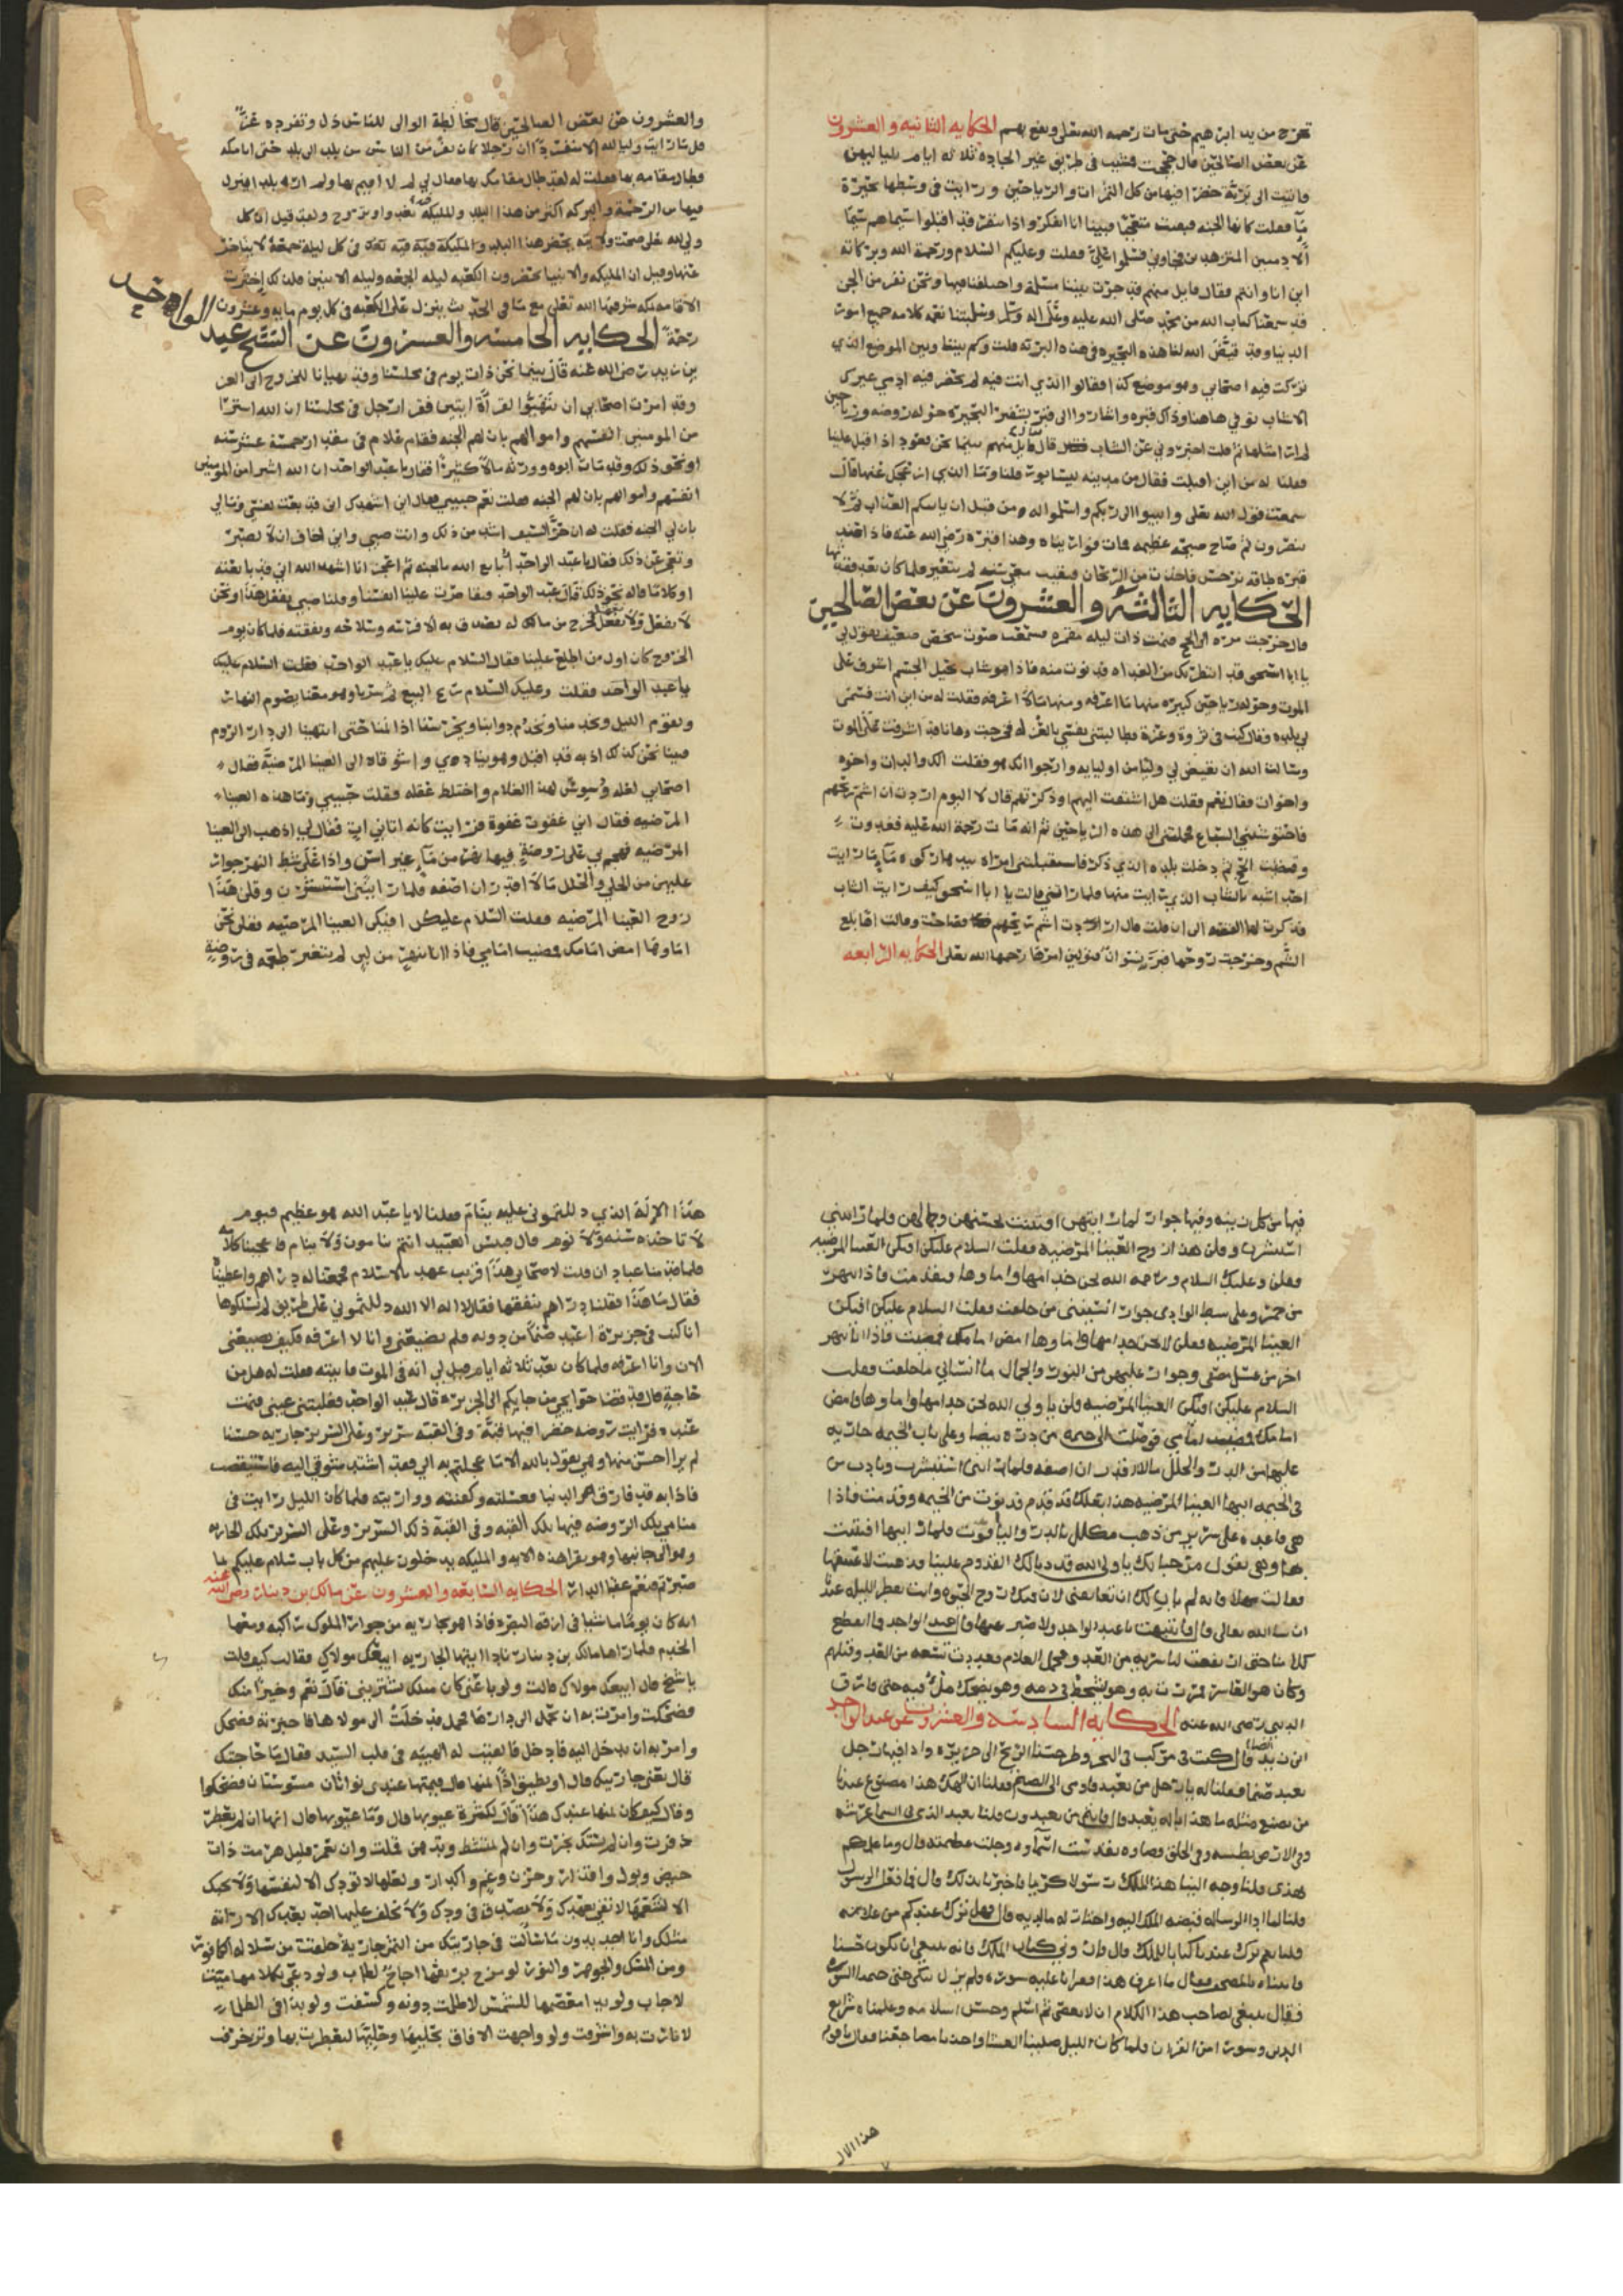 تخرج من يد ابرهيم حتى مات رحمه الله تعلى ونفع بهم الحكايه الثانيه والعشرون
عن بعض الصالحين قال حججت فبقيت في طريق غير الجاده ثلاثه ايام بلياليهن
فقلت كانها الجنه فبقيت متعجبا فبينا انا افكر واذا بنفر قد اقبلوا سيماهم سيما
الادميين فسلموا علي فقلت وعليكم السلام ورحمة الله وبركاته
ابن انا وانتم فقال قايل منهم قد جرت بيننا مسئلة واختلفنا فيها ونحن نفر من الجن
قد سمعنا كتاب الله من محمد صلى الله عليه وعلى اله وسلم وسلبتنا نغمة كلامه جميع امور
الدنيا وقد قيض الله لنا هذه البحيره في هذه البريه قلت وكم بيننا وبين الموضع الذي
تركت فيه اصحابي وهو موضع كذا فقالوا الذي انت فيه لم يحضر فيه ادمي غيرك
الا شاب توفي هاهنا وذاك قبره واشاروا الى قبر بشفير البحيره حوله روضه ورياحين
لم ار مثلها ثم قلت اخبروني عن الشاب قال قايل منهم بينما نحن قعود اذ اقبل علينا
فقلنا له من اين اقبلت فقال من مدينه نيسابور قلنا وما الذي
سمعت قول الله تعلى وانيبوا الى ربكم واسلموا له من قبل ان ياتيكم العذاب ثم لا
تنصرون ثم صاح صيحه عظيمه فمات فواريناه وهذا قبره رضي الله عنه
الحكايه الثالثه والعشرون عن بعض الصالحين
قال خرجت مره الى الحج فنمت ذات ليله مقمره فسمعت صوت شخص ضعيف يقول لي
يا ابا اسحق قد انتظرتك من الغداه فدنوت منه فاذا هو شاب نحيل الجسم اشرف على
الموت وحوله رياحين كثيره منها ما اعرفه ومنها ما لا اعرفه فقلت له من اين انت فسمى
لي بلده وقال كنت في ثروة وعزة فطالبتني نفسي بالعزله فخرجت وها انا قد اشرفت على الموت
وسالت الله ان يقيض لي وليا من اوليايه وارجوا انك هو فقلت الك والدان واخوه
واخوات فقال نعم فقلت هل اشتقت اليهم او ذكرتهم قال لا اليوم اردت ان اشم ريحهم
فذكرت لها القصه الى ان قلت قال اردت اشم ريحهم فصاحت وقالت اه بلغ
الشم وخرجت روحها رحمها الله تعلى الحكايه الرابعه
والعشرون عن بعض الصالحين قال مخالطة الوالي للناس ذل وتفرده عز
قل ما رايت وليا لله الا منفردا
الاقامه بمكه شرفها الله تعلى مع ما في الحديث ينزل على الكعبه في كل يوم مايه وعشرون
رحمة الحكايه الخامسه والعشرون عن الشيخ عبد الواحد
بن زيد رضي الله عنه قال بينما نحن ذات يوم في مجلسنا وقد تهيانا للخروج الى الغزو
وقد امرت اصحابي ان يتهيوا لقراة ايتين فقرا رجل في مجلسنا ان الله اشترا
من المومنين انفسهم واموالهم بان لهم الجنه فقام غلام في مقدار خمسة عشر سنه
او نحو ذلك وقد مات ابوه وورثه مالا كثيرا فقال يا عبد الواحد ان الله اشترا من المومنين
انفسهم واموالهم بان لهم الجنه فقلت نعم حبيبي فقال اني اشهدك اني قد بعت نفسي ومالي
بان لي الجنه فقلت له ان حر السيف اشد من ذلك وانت صبي واني اخاف ان لا تصبر
وتعجز عن ذلك فقال يا عبد الواحد ابايع الله بالجنه ثم اعجز انا اشهد الله اني قد بايعته
او كلاما قاله نحو ذلك قال عبد الواحد فتقاصرت علينا انفسنا وقلنا صبي يفعل هذا ونحن
لا نفعل فخرج من ماله كله فتصدق به الا فرسه وسلاحه ونفقته فلما كان يوم
الخروج كان اول من اطلع علينا فقال السلام عليك يا عبد الواحد فقلت السلام عليك
وعليك السلام ربح البيع ثم سرنا وهو معنا يصوم النهار
ويقوم الليل ويخدمنا ويخدم دوابنا ويحرسنا اذا نمنا حتى انتهينا الى دار الروم
فبينا نحن كذلك اذ به قد اقبل وهو ينادي واشوقاه الى العينا المرضية فقال
اصحابي لعله وسوس لهذا الغلام واختلط عقله فقلت حبيبي وما هذه العينا
المرضيه فقال اني غفوت غفوة فرايت كانه اتاني ات فقال لي اذهب الى العينا
المرضيه فهجم بي على روضة فيها نهر من ماء غير اسن واذا على شط النهر جوار
عليهن من الحلي والحلل ما لا اقدر ان اصفه فلما رايتني استبشرن وقلن هذا
زوج العينا المرضيه فقلت السلام عليكن افيكن العينا المرضيه فقلن نحن
اماوها امض امامك فمضيت امامي فاذا انا بنهر من لبن لم يتغير طعمه في روضة
فيها من كل زينه وفيها جوار لما رايتهن افتتنت بحسنهن وجمالهن فلما راينني
استبشرن وقلن هذا زوج العينا المرضيه فقلت السلام عليكن افيكن العينا المرضيه
فقلن وعليك السلام ورحمة الله نحن خدامها واماوها فتقدمت فاذا بنهر
من خمر وعلى شط الوادي جوار انسينني من خلفت فقلت السلام عليكن افيكن
العينا المرضيه فقلن لا نحن خدامها واماوها امض امامك فمضيت فاذا انا بنهر
اخر من عسل مصفى وجوار عليهن من النور والجمال ما انساني ما خلفت فقلت
السلام عليكن افيكن العينا المرضيه قلن يا ولي الله نحن خدامها واماوها فامض
امامك فمضيت امامي فوصلت الى خيمه من دره بيضا وعلى باب الخيمه جاريه
عليها من الدر والحلل ما لا اقدر ان اصفه فلما راتني استبشرت ونادت من
في الخيمه ايتها العينا المرضيه هذا بعلك قد قدم قد دنوت من الخيمه وقدمت فاذا
هي قاعده على سرير من ذهب مكلل بالدر والياقوت فلما رايتها افتتنت
بها وهي تقول مرحبا بك يا ولي الله قد دنا لك القدوم علينا فذهبت لاعتنقها
فقالت مهلا فانه لم يان لك ان تعانقني لان فيك روح الحيوه وانت تفطر الليله عندنا
ان شا الله تعالى قال فانتبهت يا عبد الواحد ولا صبر عنها قال عبد الواحد فما انقطع
كلامنا حتى ارتفعت لنا سريه من العدو وحمل الغلام فعددت تسعه من العدو قتلهم
وكان هو العاشر فمررت به وهو يتشحط في دمه وهو يضحك ملئ فيه حتى فارق
الدنيا رضي الله عنه الحكايه السادسه والعشرون عن عبد الواحد
ابن زيد ايضا قال كنت في مركب في البحر وطرحتنا الريح الى جزيره واذا فيها رجل
يعبد صنما فقلنا له يا رجل من تعبد فاومى الى الصنم فقلنا ان الهك هذا مصنوع عندنا
من يصنع مثله ما هذا اله يعبد قال فانتم من تعبدون قلنا نعبد الذي في السما عرشه
وفي الارض بطشه وفي الخلق قضاوه تقدست اسماوه وجلت عظمته قال وما علمكم
بهذا قلنا وجه الينا هذا الملك رسولا كريما فاخبرنا بذلك قال فما فعل الرسول
قلنا لما ادا الرساله قبضه الملك اليه واختار له ما لديه قال فهل ترك عندكم من علامه
قلنا نعم ترك عندنا كتاب الملك قال فاروني كتاب الملك فانه ينبغي ان تكون حسنا
فاتيناه بالمصحف فقال ما اعرف هذا فقرانا عليه سوره ولم يزل يبكي حتى ختمنا السوره
فقال ينبغي لصاحب هذا الكلام ان لا يعصى ثم اسلم وحسن اسلامه وعلمناه شرايع
الدين وسور من القران فلما كان الليل صلينا العشا واخذنا مضاجعنا فقال يا قوم
هذا الال
هذا الاله الذي دللتموني عليه ينام قلنا لا يا عبد الله هو عظيم قيوم
لا تاخذه سنه ولا نوم قال فبئس العبيد انتم تنامون ولا ينام فاعجبنا كلامه
فلما قدمنا عبادان قلت لاصحابي هذا قريب عهد بالاسلام فجمعنا له دراهم واعطيناه
فقال ما هذا فقلنا دراهم تنفقها فقال لا اله الا الله دللتموني على طريق لم تسلكوها
انا كنت في جزيرة اعبد صنما من دونه ولم يضيعني وانا لا اعرفه فكيف يضيعني
الان وانا اعرفه فلما كان بعد ثلاثه ايام قيل لي انه في الموت فاتيته فقلت له هل من
حاجة قال قد قضا حوايجي من جا بكم الى الجزيره قال عبد الواحد فغلبتني عيني فنمت
عنده فرايت روضه خضرا فيها قبة وفي القبه سرير وعلى السرير جاريه حسنا
لم يرا احسن منها وهي تقول بالله الا ما عجلتم به الي فقد اشتد شوقي اليه فاستيقظت
فاذا به قد فارق الدنيا فغسلته وكفنته وواريته فلما كان الليل رايت في
منامي تلك الروضه فيها تلك القبه وفي القبة ذلك السرير وعلى السرير تلك الجاريه
وهو الى جانبها وهو يقرا هذه الايه والمليكه يدخلون عليهم من كل باب سلام عليكم بما
صبرتم فنعم عقبا الدار الحكايه السابعه والعشرون عن مالك بن دينار رضي الله عنه
انه كان يوما ماشيا في ازقة البصره فاذا هو بجارية من جوار الملوك راكبه ومعها
الخدم فلما راها مالك بن دينار نادا ايتها الجاريه ايبيعك مولاك فقالت كيف قلت
يا شيخ قال ايبيعك مولاك قالت ولو باعني كان مثلك يشتريني قال نعم وخيرا منك
فضحكت وامرت به ان يحمل الى دارها فحمل فدخلت الى مولاها فاخبرته فضحك
وامر به ان يدخل اليه فادخل فالقيت له الهيبه في قلب السيد فقال ما حاجتك
قال بعني جاريتك قال او تطيق اداء ثمنها قال قيمتها عندي نواتان مسوستان فضحكوا
وقال كيف كان ثمنها عندك هذا قال لكثرة عيوبها قال وما عيوبها قال انها ان لم تعطر
ذفرت وان لم تستك بخرت وان لم تمتشط وتدهن قملت وان تعمر قليل هرمت ذات
حيض وبول واقذار وحزن وغم واكدار ولعلها لا تودك الا لنفسها ولا تحبك
الا لتنعمها لا تفي بعهدك ولا تصدق في ودك ولا يخلف عليها احد بعدك الا راته
مثلك وانا اجد بدون ما سالت في جاريتك من الثمن جارية خلقت من سلاله الكافور
ومن المسك والجوهر والنور لو مزج بريقها اجاج لطاب ولو دعي بكلامها ميت
لاجاب ولو بدا معصمها للشمس لاظلمت دونه وكسفت ولو بدا في الظلمات
لانارت به واشرقت ولو واجهت الافاق بحليها وحللها لتعطرت بها وتزخرفت